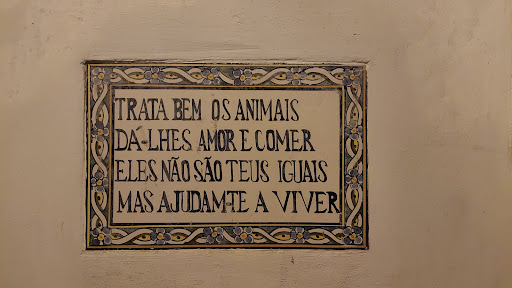 TRATA BEM OS ANIMAIS
DÁ-LHES AMOR E COMER
ELES NÃO SÃO TEUS IGUAIS
MAS AJUDAM-TE A VIVER